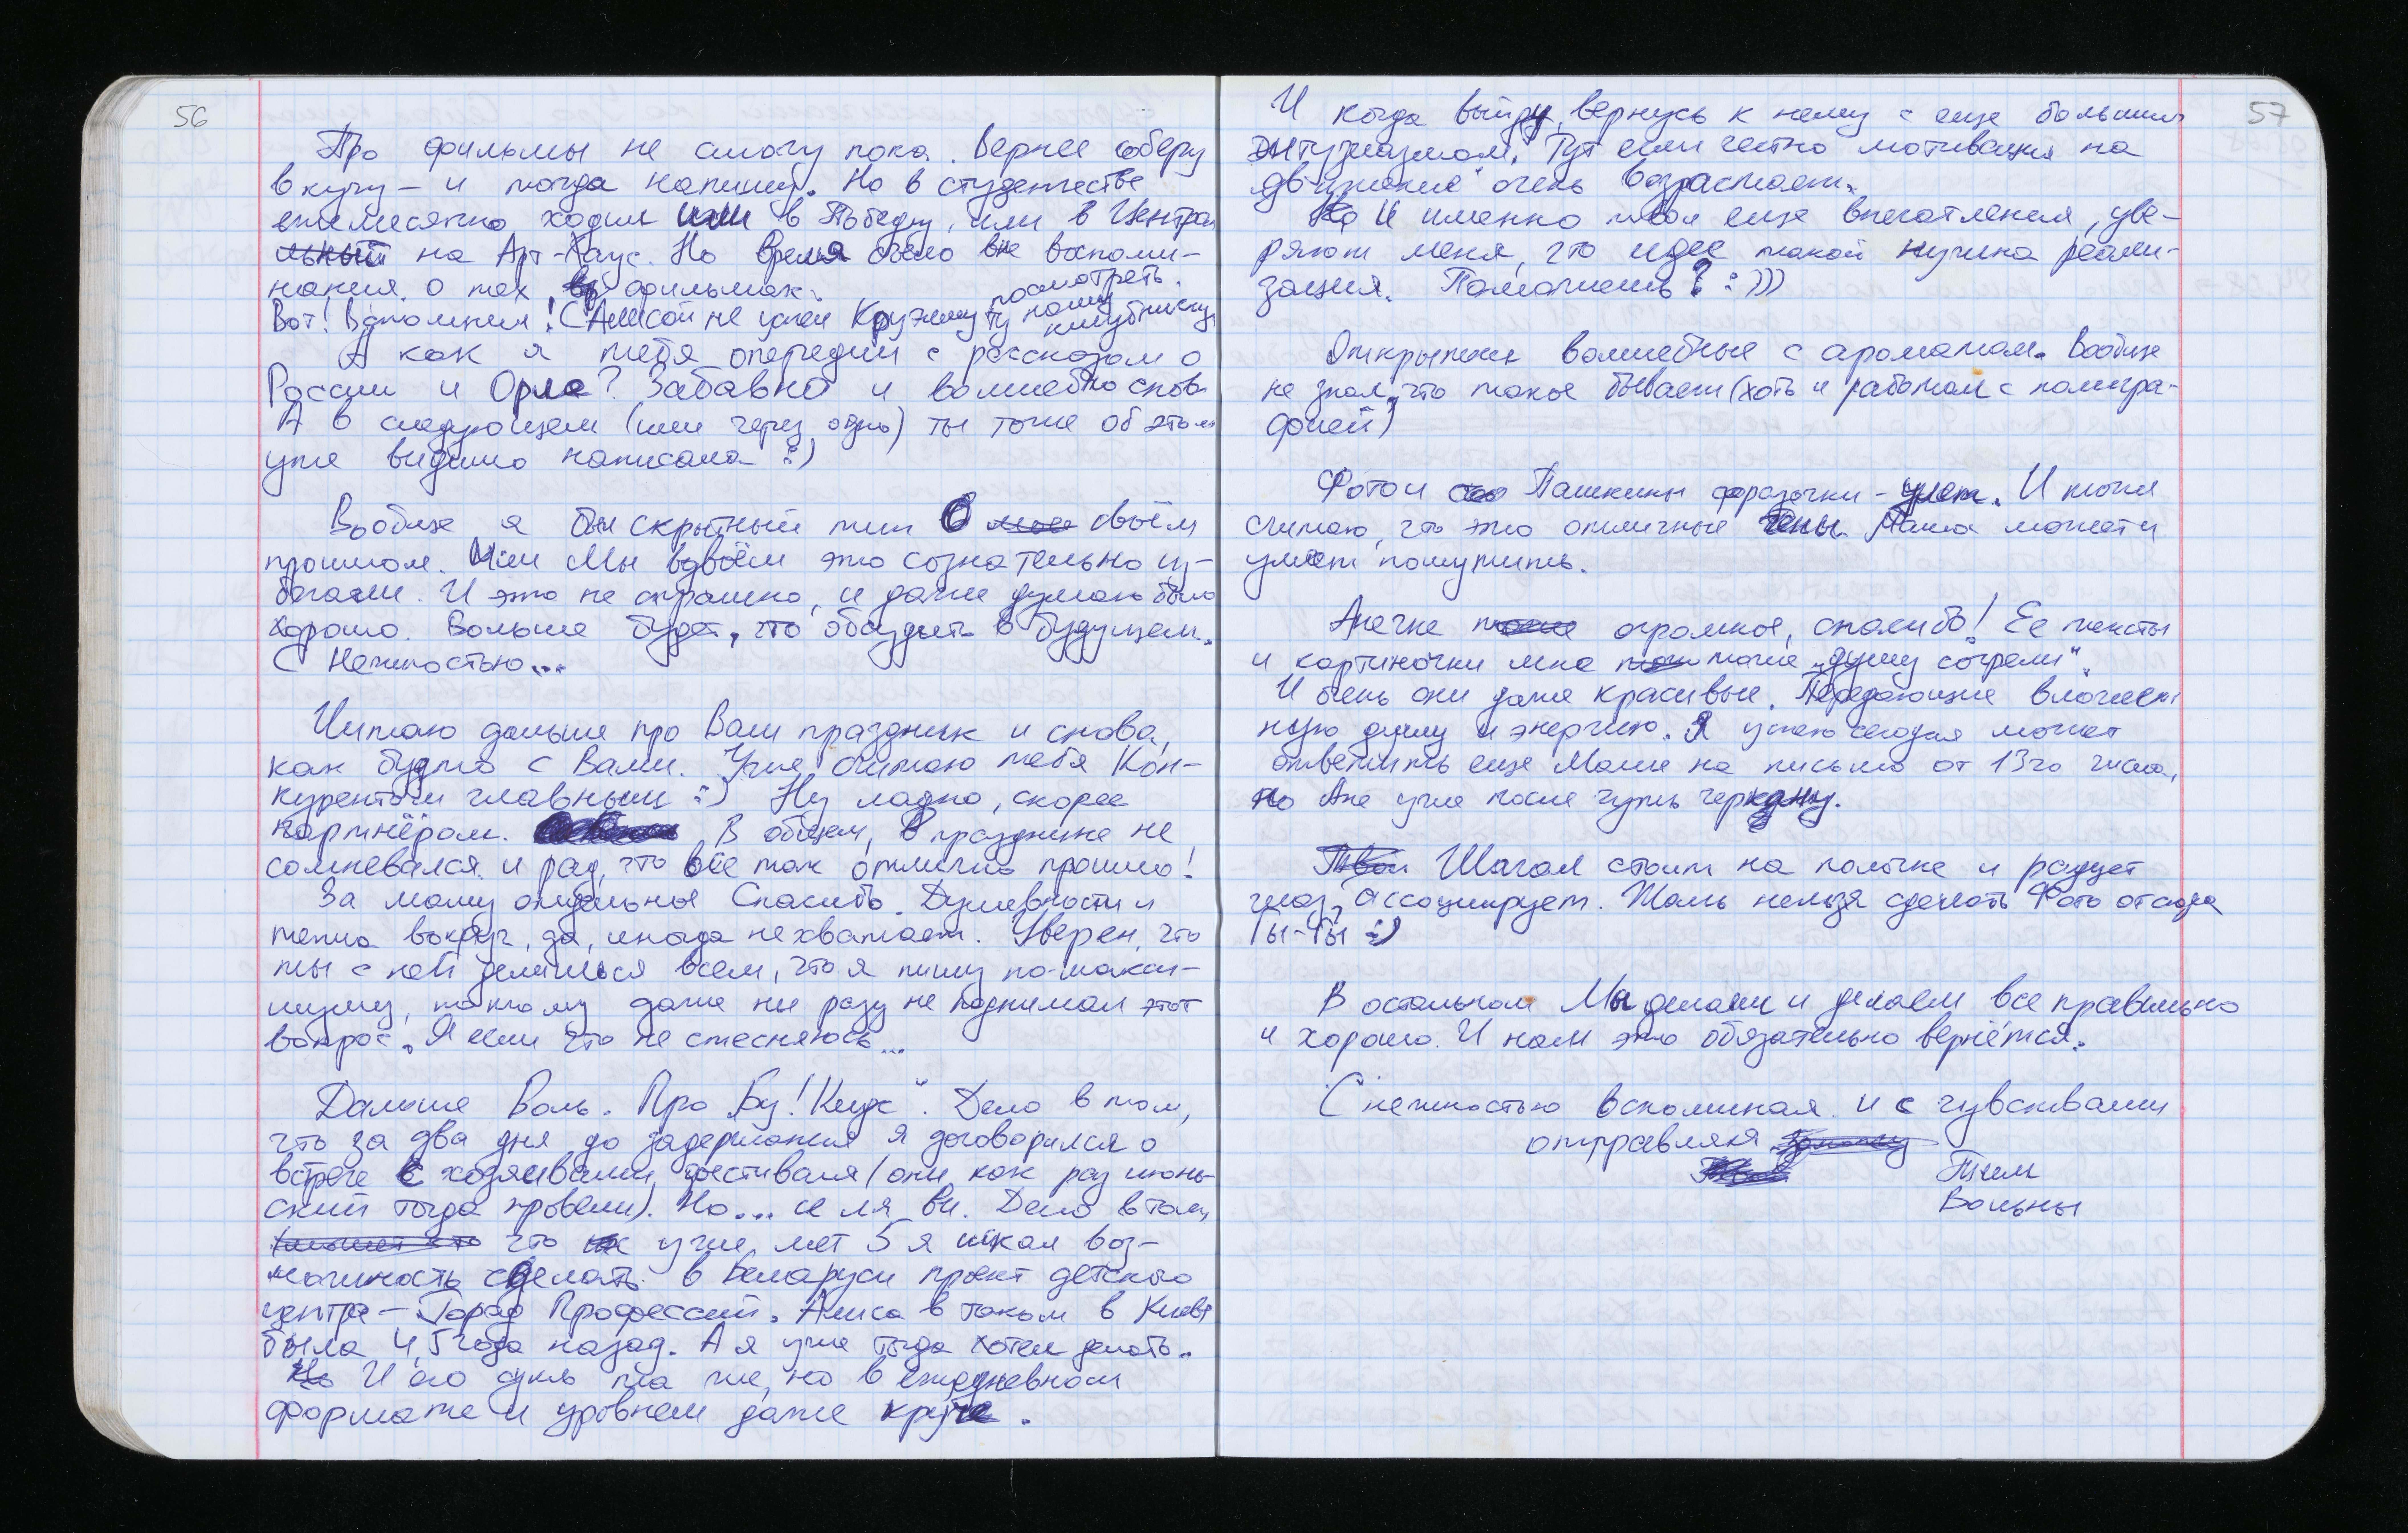 56
Про фильмы не смогу пока. Вернее соберу
в кучу – и тогда напишу. Но в студенчестве
ежемесячно ходил или в Победу, или в Центра
льный на Арт-Хаус. Но время было вне воспоми-
нания о тех фильмах.
посмотреть.
Вот! Вспомнил! С Алисой не успел Кружему ту нашу
кинубники
А как я тебя опередил с рассказом о
России и Орле? Забавно и волшебно снова
А в следующем (или через одно) ты тоже об этом
уже видимо написала :)
Вообще я был скрытный тип о своём
прошлом. Или Мы вдвоём это сознательно из-
бегали. И это не страшно, и даже думаю было
хорошо. Больше будет, что обсудить в будущем.
С Нежностью...
Читаю дальше про Ваш праздник и снова,
как будто с Вами. Уже считаю тебя Кон-
курентом главным :) Ну ладно, скорее
партнёром. В общем, в празднике не
сомневался и рад, что все так отлично прошло!
За маму отдельное Спасибо. Душевности и
тепла вокруг, да, иногда не хватает. Уверен, что
ты с ней делишься всем, что я пишу по-макси-
муму, потому даже ни разу не поднимал этот
вопрос. Я если что не стесняюсь...
Дальше Воль. Про „Бу! Кидс“. Дело в том,
что за два дня до задержания я договорился о
встрече с хозяевами фестиваля (они как раз июнь-
ский тогда провели). Но... се ля ви. Дело в том,
что уже лет 5 я искал воз-
можность сделать в Беларуси проект детского
центра – Город Профессий. Алиса в таком в Киеве
была 4,5 года назад. А я уже тогда хотел делать.
Но И его суть та же, но в ежедневном
формате и уровнем даже круче.
57
И когда выйду, вернусь к нему с еще большим
энтузиазмом. Тут если честно мотивация на
„движения“ очень возрастает.
Но И именно твои еще впечатления, уве-
ряют меня, что идее такой нужна реали-
зация. Поможешь? :)))
Открытки волшебные с ароматом. Вообще
не знал, что такое бывает (хоть и работал с полигра-
фией)
Фото и Пашкины фразочки – улет. И тоже
считаю, что это отличные Паша может и
умеет пошутить.
Анечке огромное, спасибо! Ее тексты
и картиночки мне тоже „душу согрели“.
И очень они даже красивые. Передающие вложен
ную душу и энергию. Я успею сегодня может
ответить еще Маше на письмо от 13го числа,
но Ане уже после чуть черкану.
Твой Шагал стоит на полочке и радует
глаз, ассоциирует. Жаль нельзя сделать Фото отсюда
Ты-Ты :)
В остальном Мы делали и делаем все правильно
и хорошо. И нам это обязательно вернётся.
С нежностью вспоминая и с чувствами
отправляя
Тим
Вольны